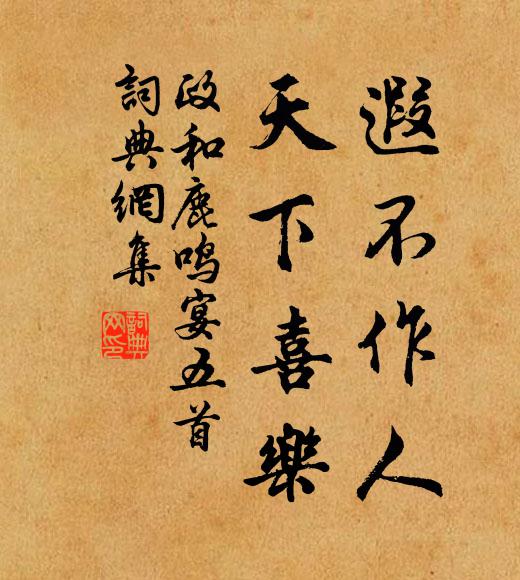 遐不作人
天下喜樂
政和鹿鳴宴五首
詞典網集
詞典
网印